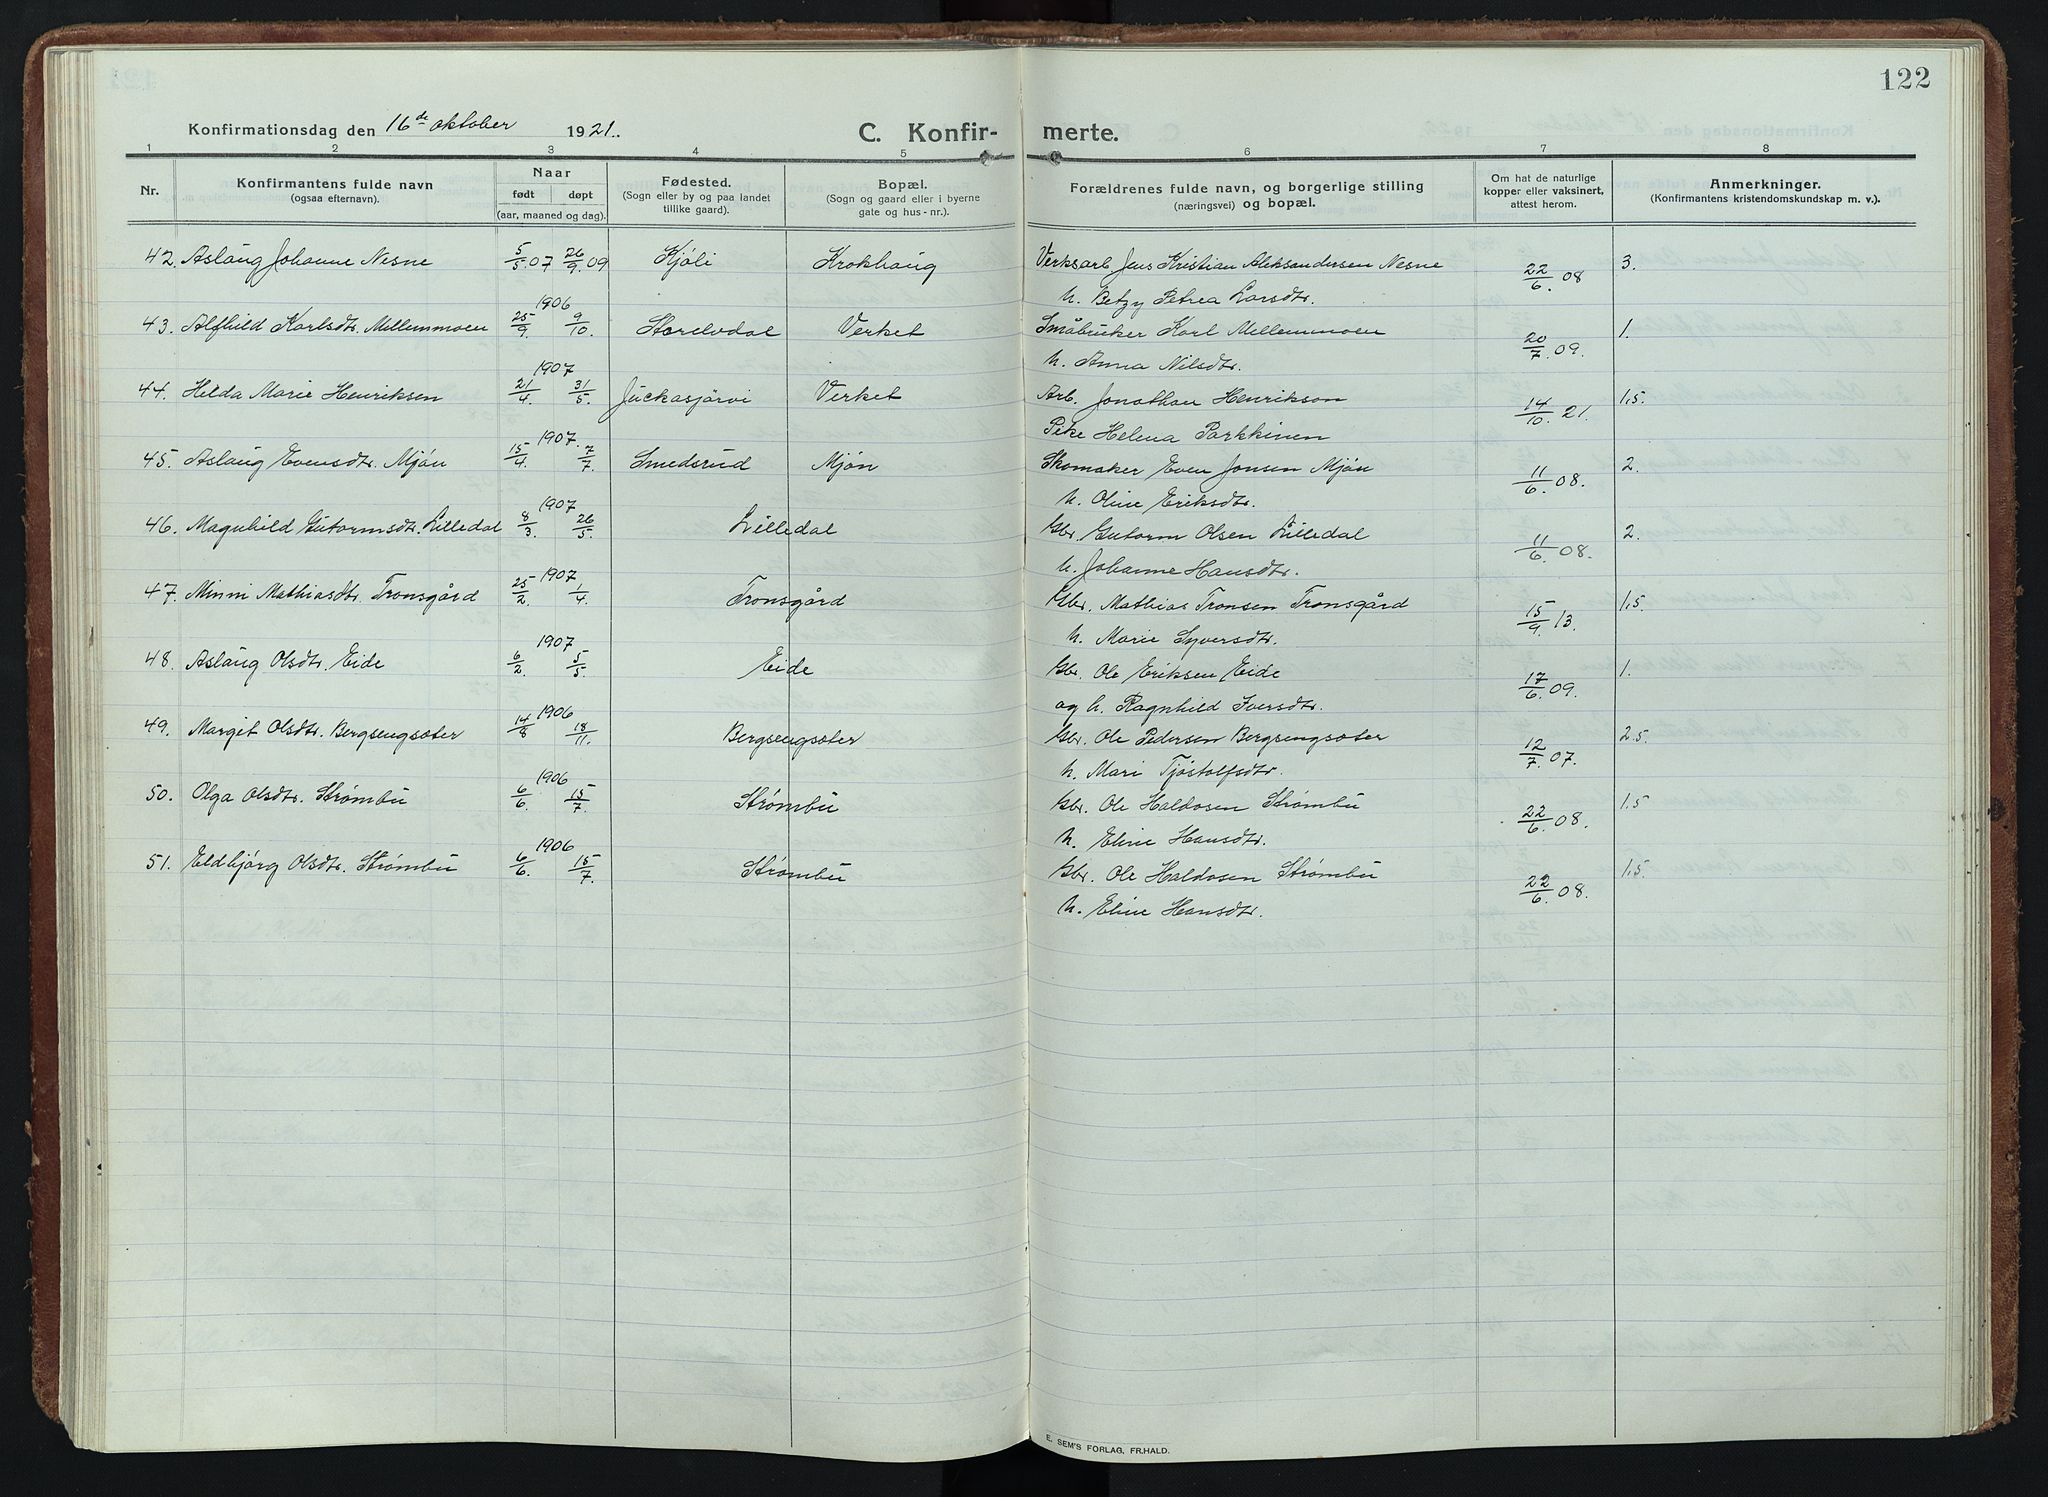 122
Konfirmationsdag den 16de oktober 1921.
C. Konfirmerte.
1 2 3 4 5 6 7 8
Nr.
Konfirmantens fulde navn
(ogsaa efternavn).
Naar
født døpt
(aar, maaned og dag).
Fødested.
(Sogn eller by og paa landet
tillike gaard).
Bopæl.
(Sogn og gaard eller i byerne
gate og hus-nr.).
Forældrenes fulde navn, og borgerlige stilling
(næringsvei) og bopæl.
Om hat de naturlige
kopper eller vaksinert,
attest herom.
Anmerkninger.
(Konfirmantens kristendomskundskap m. v.).
42. Aslaug Johanne Nesne 5/5. 07 26/9. 09 Kjøli Krokhaug Verksarb. Jens Kristian Aleksandersen Nesne 22/6. 08 3.
h. Betzy Petrea Larsdtr.
1906
43. Alfhild Karlsdtr. Mellemmoen 25/9. 9/10. Storelvdal Verket Småbruker Karl Mellemmoen 20/7. 09. 1.
h. Anna Nilsdtr.
1907
44. Helda Marie Henriksen 21/4. 31/5. Juckasjärvi Verket Arb. Jonathan Henrikson 14/10. 21. 1,5.
Peke Helena Parkkinen
1907.
45. Aslaug Evensdtr. Mjøn 15/4. 7/7. Smedsrud Mjøn Skomaker Even Jonsen Mjøn 11/6. 08. 2.
h. Oline Eriksdtr.
1907
46. Magnhild Gutormsdtr. Lilledal 8/3. 26/5. Lilledal Gbr. Gutorm Olsen Lilledal 11/6. 08. 2.
h. Johanne Hansdtr.
1907
47. Minni Mathiasdtr. Tronsgård 25/2. 1/4. Tronsgård Gbr. Mathias Tronsen Tronsgård 15/9. 13. 1,5.
h. Marie Syversdtr.
1907
48. Aslaug Olsdtr. Eide 6/2. 5/5. Eide Gbr. Ole Eriksen Eide 17/6. 09. 1.
og h. Ragnhild Iversdtr.
1906
49. Margit Olsdtr. Bergsengsæter 14/8 18/11. Bergsengsæter Gbr. Ole Pedersen Bergsengsæter 12/7. 07. 2.5.
h. Mari Tjøstolfsdtr.
1906
50. Olga Olsdtr. Strømbu 6/6. 15/7. Strømbu Gbr. Ole Haldosen Strømbu 22/6. 08. 1,5
h. Eline Hansdtr.
1906
51. Eldbjørg Olsdtr. Strømbu 6/6. 15/7. Strømbu Gbr. Ole Haldosen Strømbu 22/6. 08. 1,5.
h. Eline Hansdtr.
E. SEM'S FORLAG, FR.HALD.